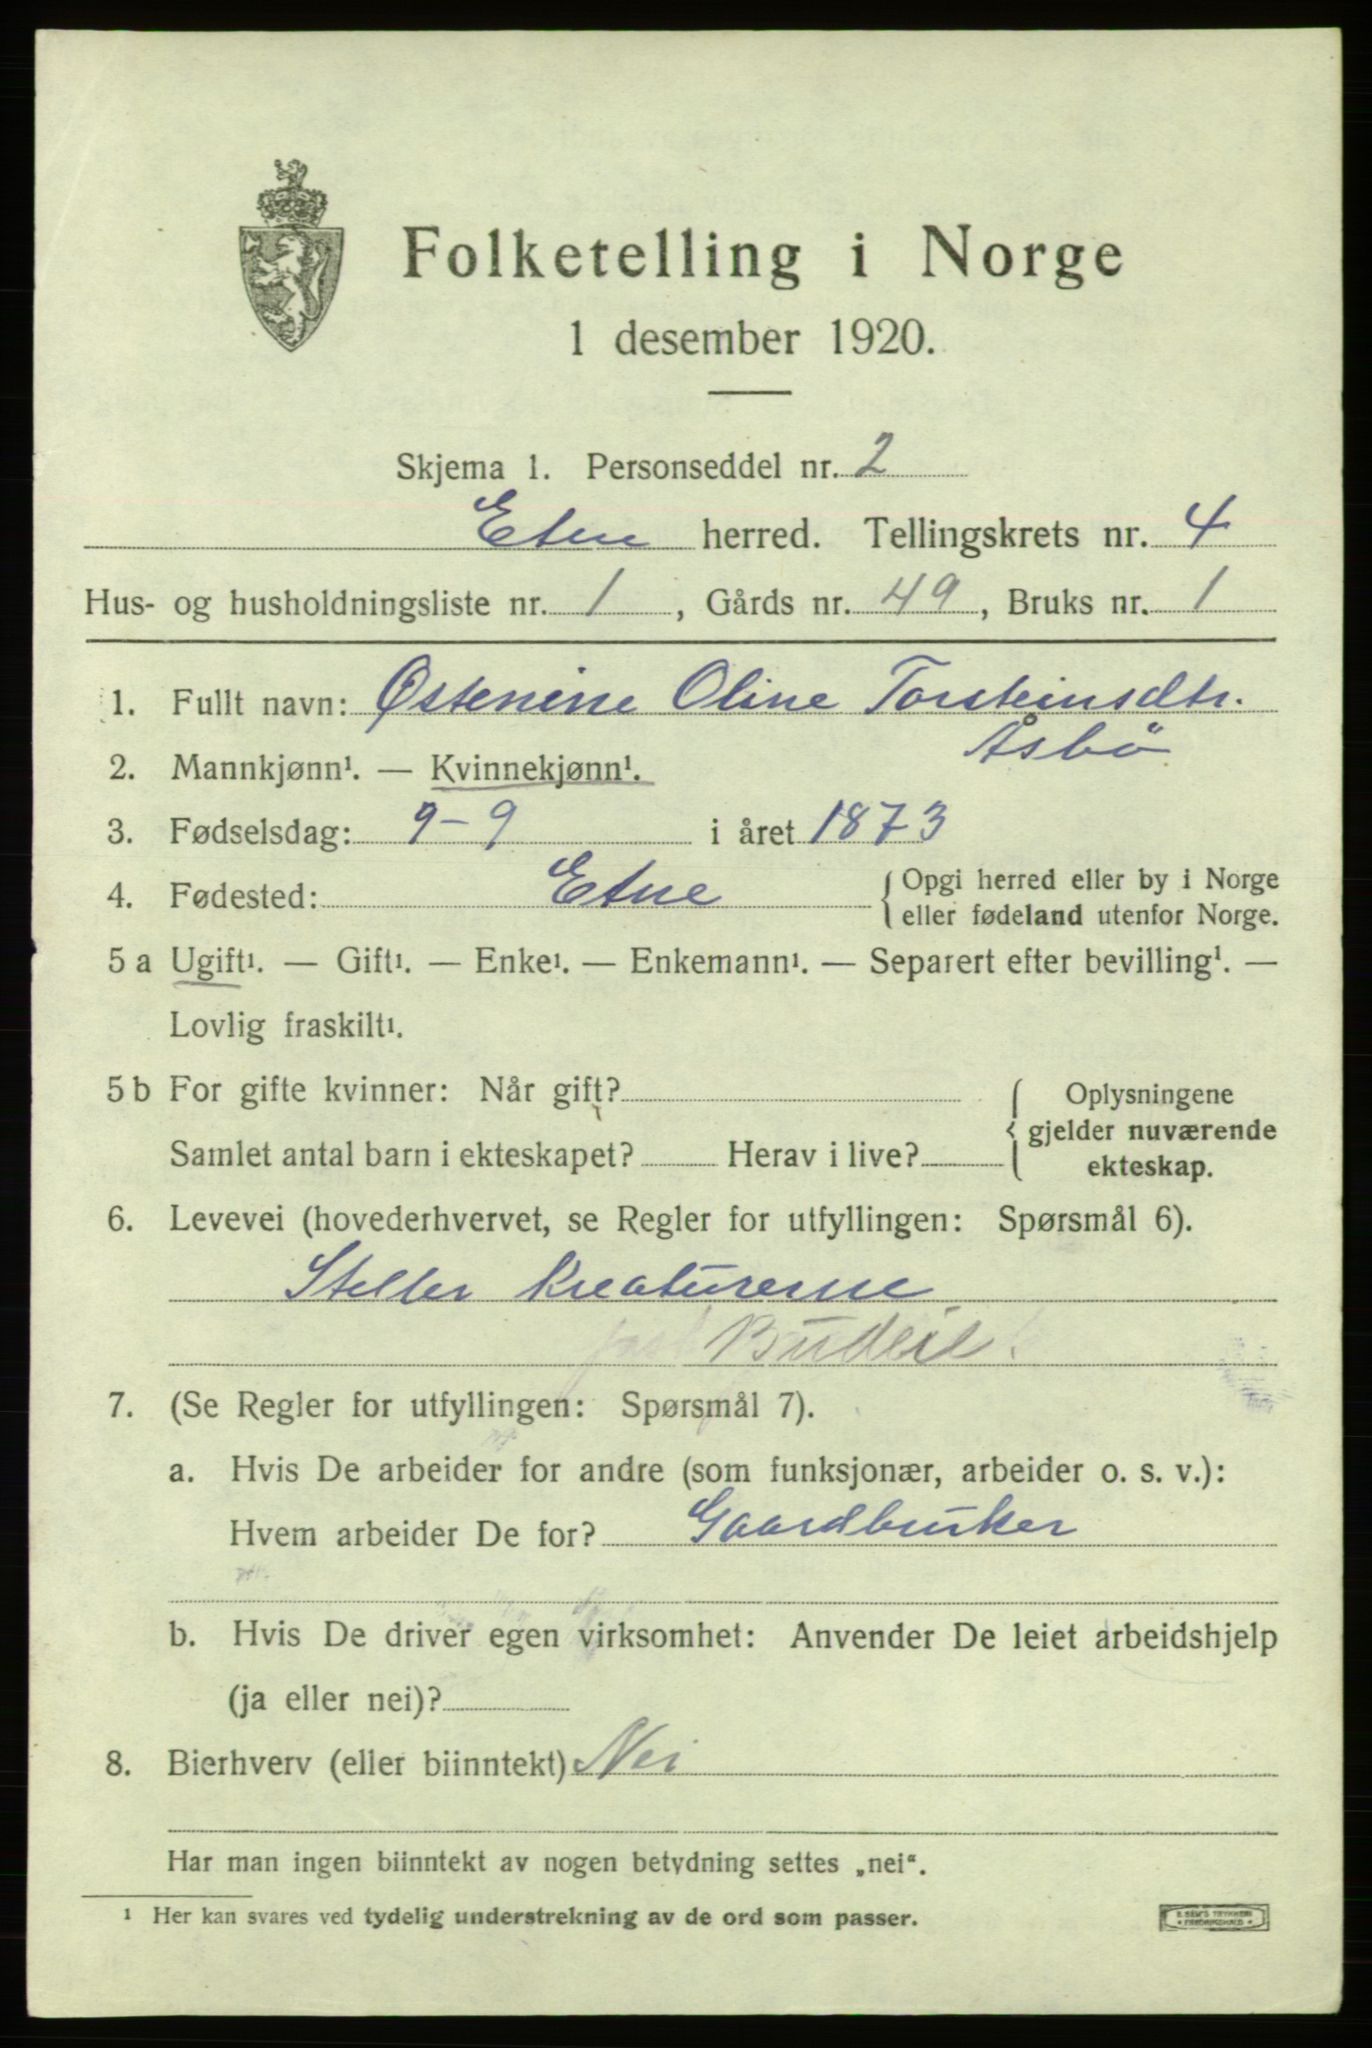 Folketelling i Norge
1 desember 1920.
Skjema 1. Personseddel nr. 2
Etne herred. Tellingskrets nr. 4
Hus- og husholdningsliste nr. 1, Gårds nr. 49, Bruks nr. 1
1. Fullt navn: Østenine Oline Torsteinsdtr.
Åsbö
2. Mannkjønn¹. — Kvinnekjønn¹.
3. Fødselsdag: 9-9 i året 1873
4. Fødested: Etne { Opgi herred eller by i Norge
eller fødeland utenfor Norge.
5 a Ugift¹. — Gift¹. — Enke¹. — Enkemann¹. — Separert efter bevilling¹. —
Lovlig fraskilt¹.
5 b For gifte kvinner: Når gift? { Oplysningene
gjelder nuværende
ekteskap.
Samlet antal barn i ekteskapet? Herav i live?
6. Levevei (hovederhvervet, se Regler for utfyllingen: Spørsmål 6).
Steller kreaturerne
Budeie
7. (Se Regler for utfyllingen: Spørsmål 7).
a. Hvis De arbeider for andre (som funksjonær, arbeider o. s. v.):
Hvem arbeider De for? Gaardbruker
b. Hvis De driver egen virksomhet: Anvender De leiet arbeidshjelp
(ja eller nei)?
8. Bierhverv (eller biinntekt) Nei
Har man ingen biinntekt av nogen betydning settes „nei“.
¹ Her kan svares ved tydelig understrekning av de ord som passer.